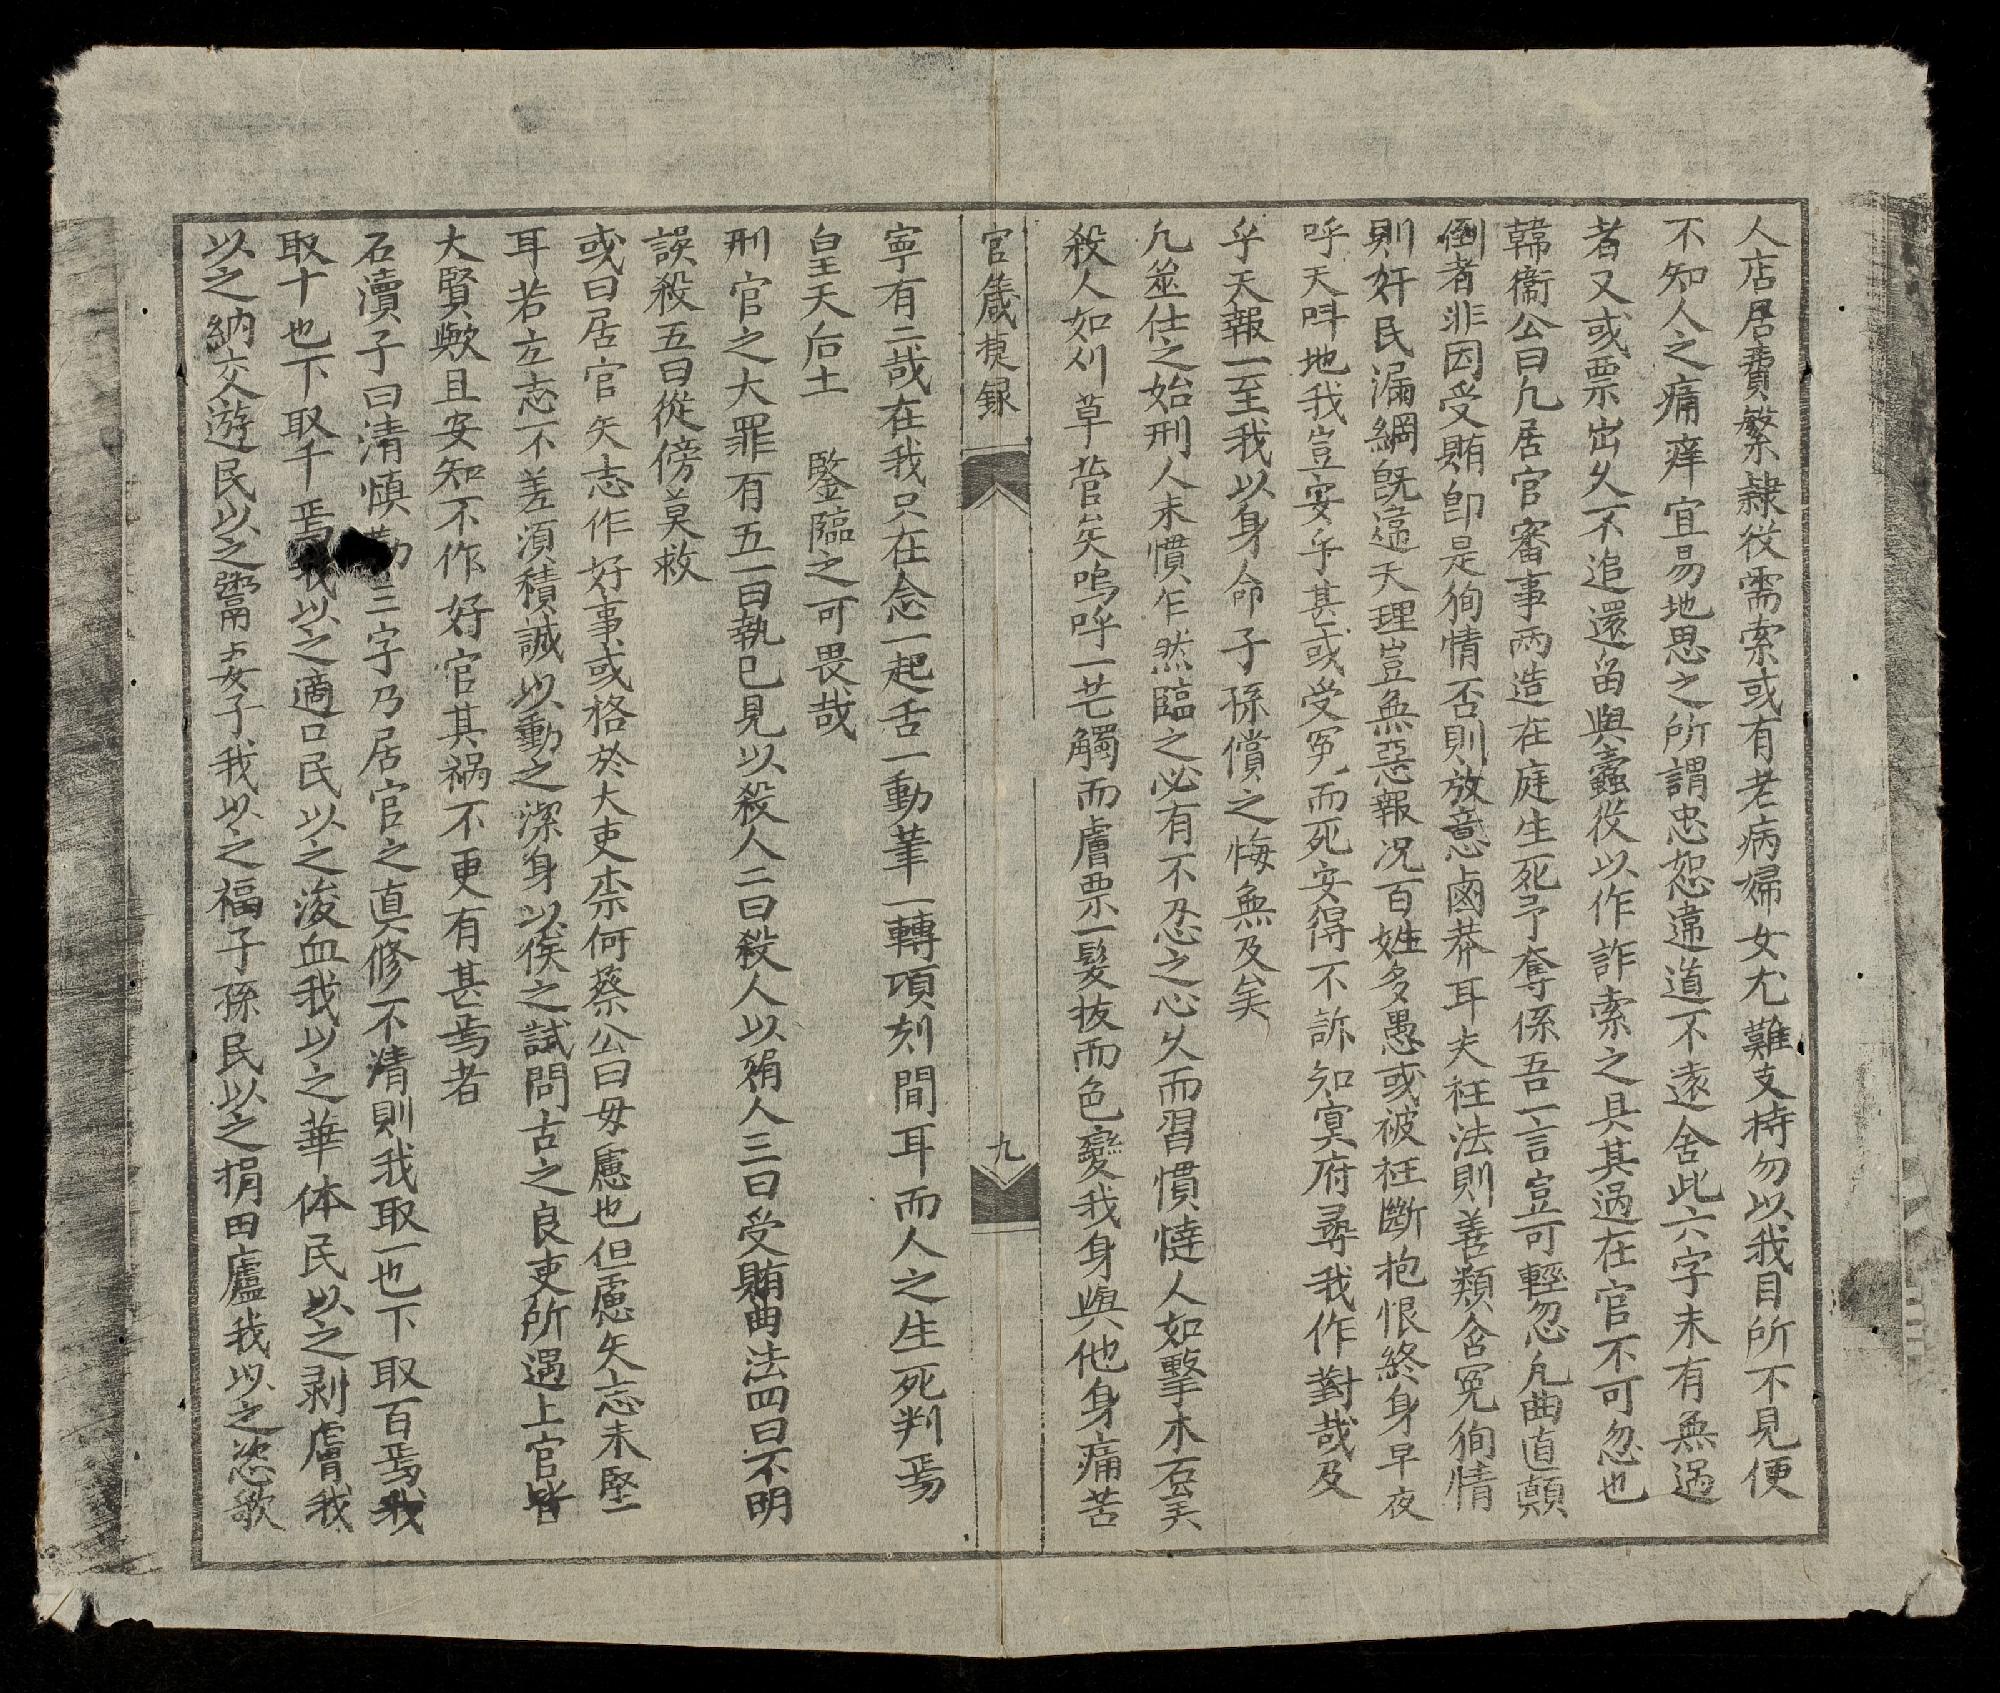 人店居費繁隸役需索或有老病婦女尤難支持勿以我目所不見便
不知人之痛痒宜易地思之所謂忠恕違道不遠舍此六字未有無過
者又或票出久不追還留與蠹役以作詐索之具其過在官不可忽也
韓衛公曰凢居官審事兩造在庭生死予奪係吾一言豈可輕忽凢曲直顛
倒者非因受賄卽是徇情否則放意鹵莽耳夫枉法則善類含冤徇情
則奸民漏網旣違天理豈無惡報况百姓多愚或被枉斷抱恨終身早夜
呼天呌地我豈安乎甚或受冤而死安得不訴知冥府尋我作對哉及
乎天報一至我以身命子孫償之悔無及矣
凢筮仕之始刑人未慣乍然臨之必有不忍之心久而習慣㨗人如擊木石矣
殺人如刈草菅矣嗚呼一芒觸而膚栗一髮抜而色變我身與他身痛苦
官箴摭録
九
寧有二哉在我只在念一起舌一動筆一轉項刻間耳而人之生死判焉
皇天后土 鑒臨之可畏哉
刑官之大罪有五一曰執已見以殺人二曰殺人以媚人三曰受賄曲法四曰不明
誤殺五曰從傍莫救
或曰居官矢志作好事或格於大吏柰何蔡公曰毋慮也但慮矢志未堅
耳若立志不差須積誠以動之潔身以俟之試問古之良吏所遇上官皆
大賢歟且安知不作好官其禍不更有甚焉者
石瀆子曰清慎勤三字乃居官之真修不清則我取一也下取百焉我
取十也下取千焉我以之適口民以之浚血我以之華体民以之剥膚我
以之納交遊民以之鬻妻子我以之福子孫民以之捐田廬我以之恣歌